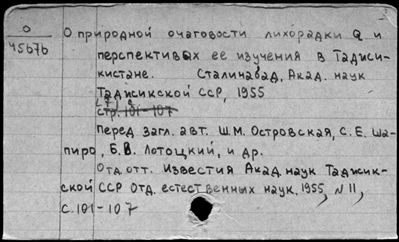 О
45676
О природной очаговости лихорадки Q и
перспективах ее изучения в Таджи-
кистане. Сталинабад, Акад. наук
Таджикской ССР, 1955
стр. 101-107
Перед загл. авт. Ш.М. Островская, С.Е. Ша-
пиро, Б.В. Лотоцкий, и др.
Отд. отт. Известия Акад. наук Таджик-
ской ССР Отд. естественных наук, 1955, N 11,
с. 101-107